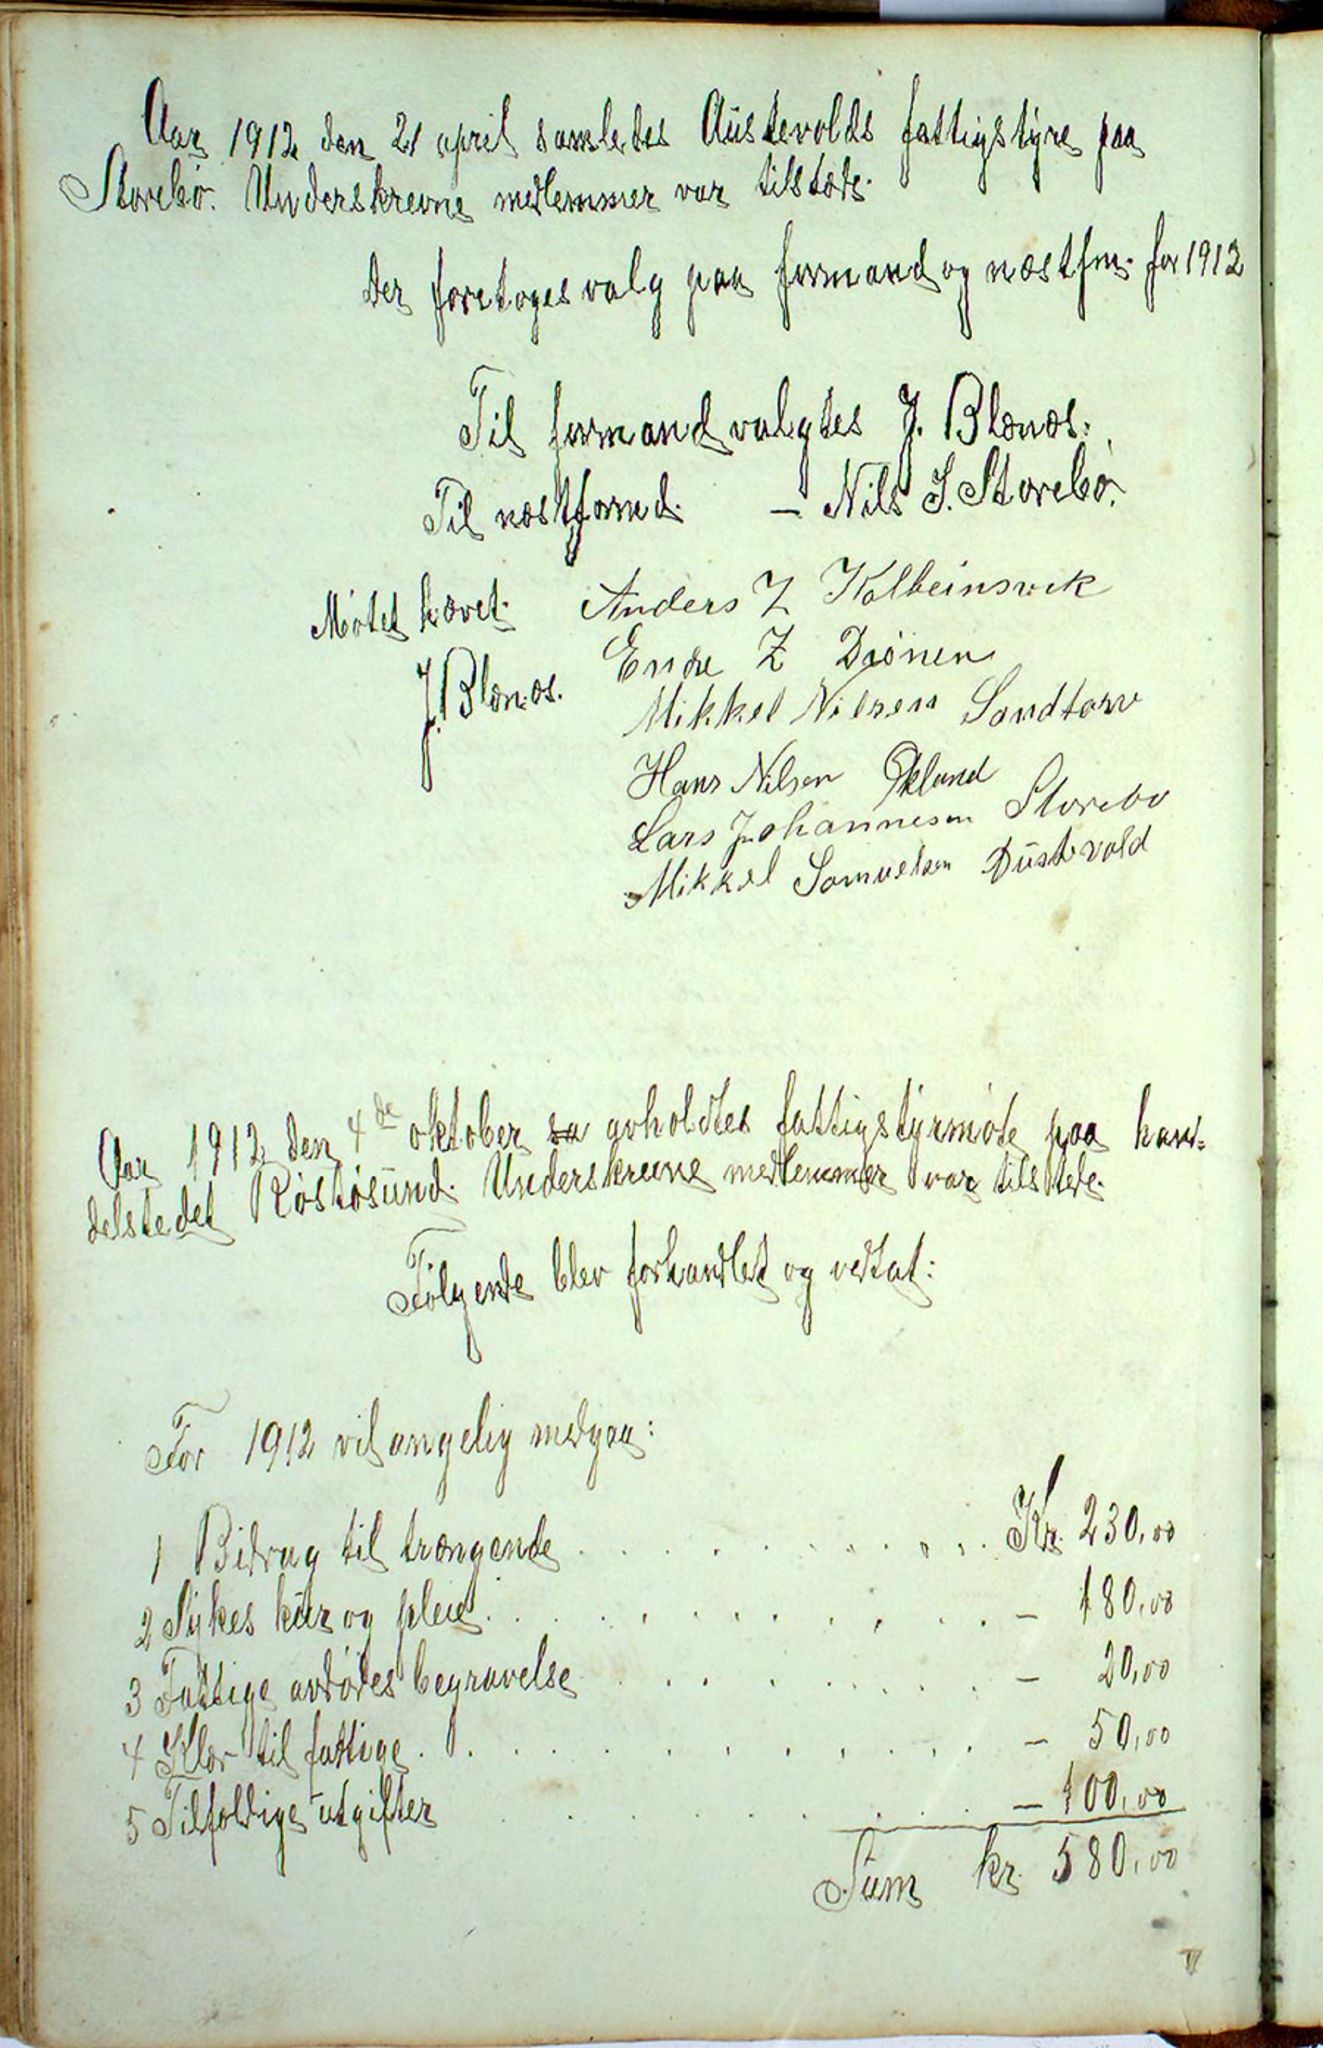 Aar 1912 den 21 april samledes Austevolds fattigstyre paa
Storebø. Underskrevne medlemmer var tilstæde.
Der foretoges valg paa formand og næstfm. for 1912
Til formand valgtes J. Blænæs.
Til næstformd. — Nils J. Storebø.
Møtet hævet.
J. Blænæs.
Anders Z Kolbeinsvik
Endre Z Drønen
Mikkel Nilsen Sandtorv
Hans Nilsen Økland
Lars Johannesen Storebø
Mikkel Samuelsen Østervold
Aar 1912 den 4de oktober sa avholdtes fattigstyrmøte paa han=
delstedet Røstøsund. Underskrevne medlemmer var tilstede.
Følgende blev forhandlet og vedtat:
For 1912 vil angelig medgaa:
1 Bidrag til trængende . . . . . . . . . . . Kr. 230,00
2 Sykes kur og pleie . . . . . . . . . . . — 180,00
3 Fattige avdødes begravelse . . . . . . . . — 20,00
4 Klær til fattige . . . . . . . . . . . . — 50,00
5 Tilfældige utgifter . . . . . . . . . — 100,00
Sum kr. 580,00